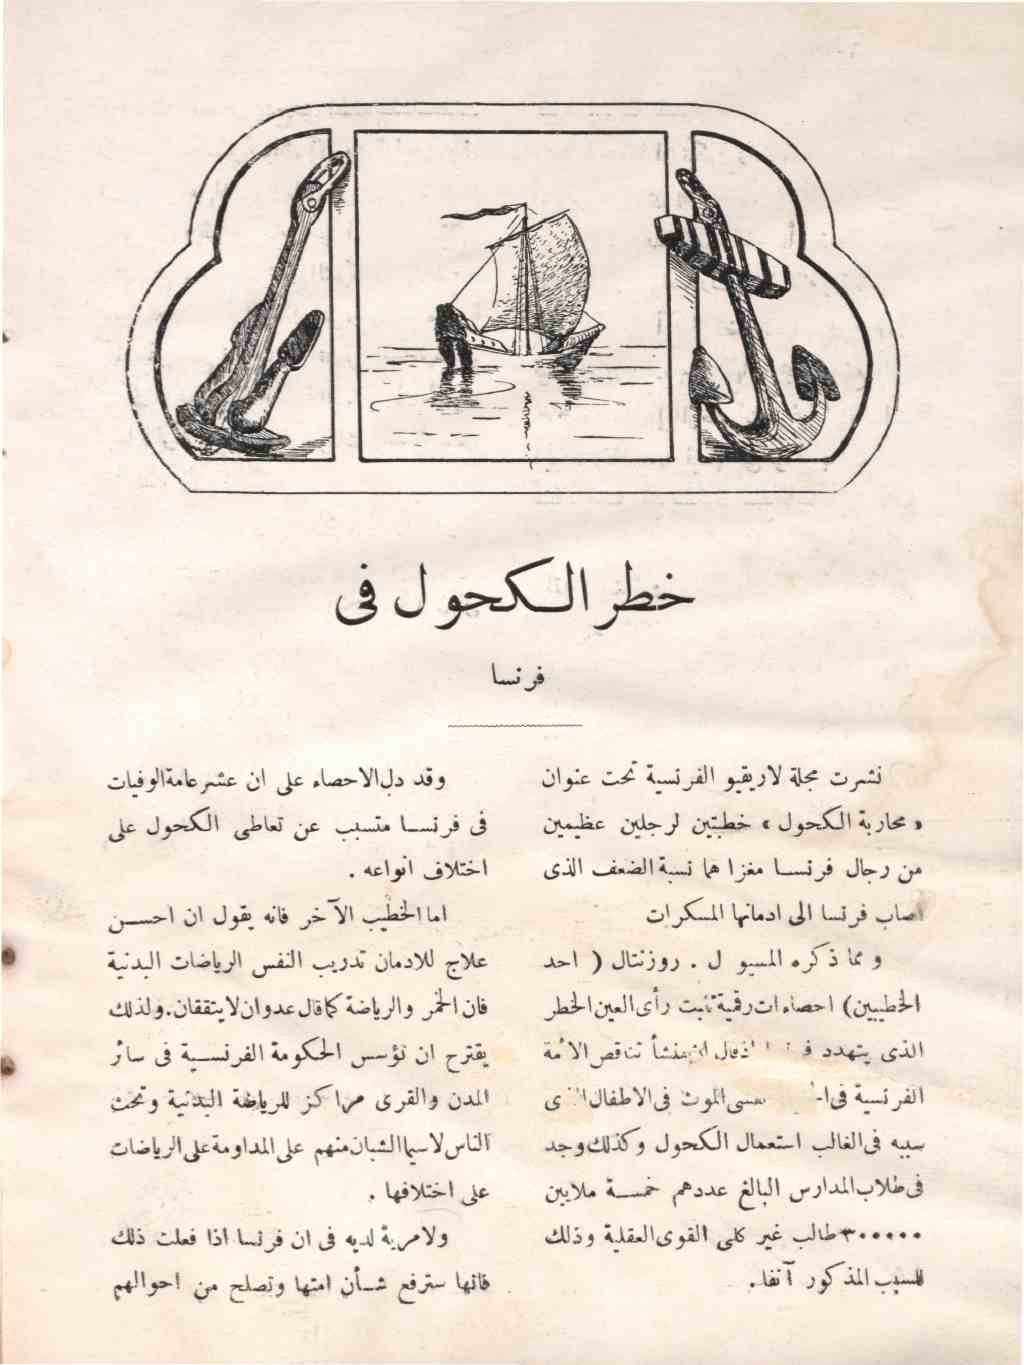 خطر الكحول فى
فرنسا
نشرت مجلة لاريفيو الفرنسية تحت عنوان
« محاربة الكحول » خطبتين لرجلين عظيمين
من رجال فرنسا مغزا هما نسبة الضعف الذى
اصاب فرنسا الى ادمانها المسكرات
و مما ذكره المسيو ل . روزنتال ( احد
الخطيبين) احصاءات رقمية تثبت رأى العين الخطر
الذى يتهدد اذقال ان منشأ تناقص الامة
الفرنسية فى الموت فى الاطفال
سببه فى الغالب استعمال الكحول وكذلك وجد
فى طلاب المدارس البالغ عددهم خمسة ملايين
٣٠٠٠٠٠ طالب غير كلى القوى العقلية وذلك
للسبب المذكور آنفا.
وقد دل الاحصاء على ان عشر عامة الوفيات
فى فرنسا متسبب عن تعاطى الكحول على
اختلاف انواعه .
اما الخطيب الآخر فانه يقول ان احسن
علاج للادمان تدريب النفس الرياضات البدنية
فان الخمر والرياضة كما قال عدوان لا يتفقان. ولذلك
يقترح ان تؤسس الحكومة الفرنسية فى سائر
المدن والقرى مراكز للرياضة البدنية وتحث
الناس لاسيما الشبان منهم على المداومة على الرياضات
على اختلافها .
ولامرية لديه فى ان فرنسا اذا فعلت ذلك
فانها سترفع شأن امتها وتصلح من احوالهم